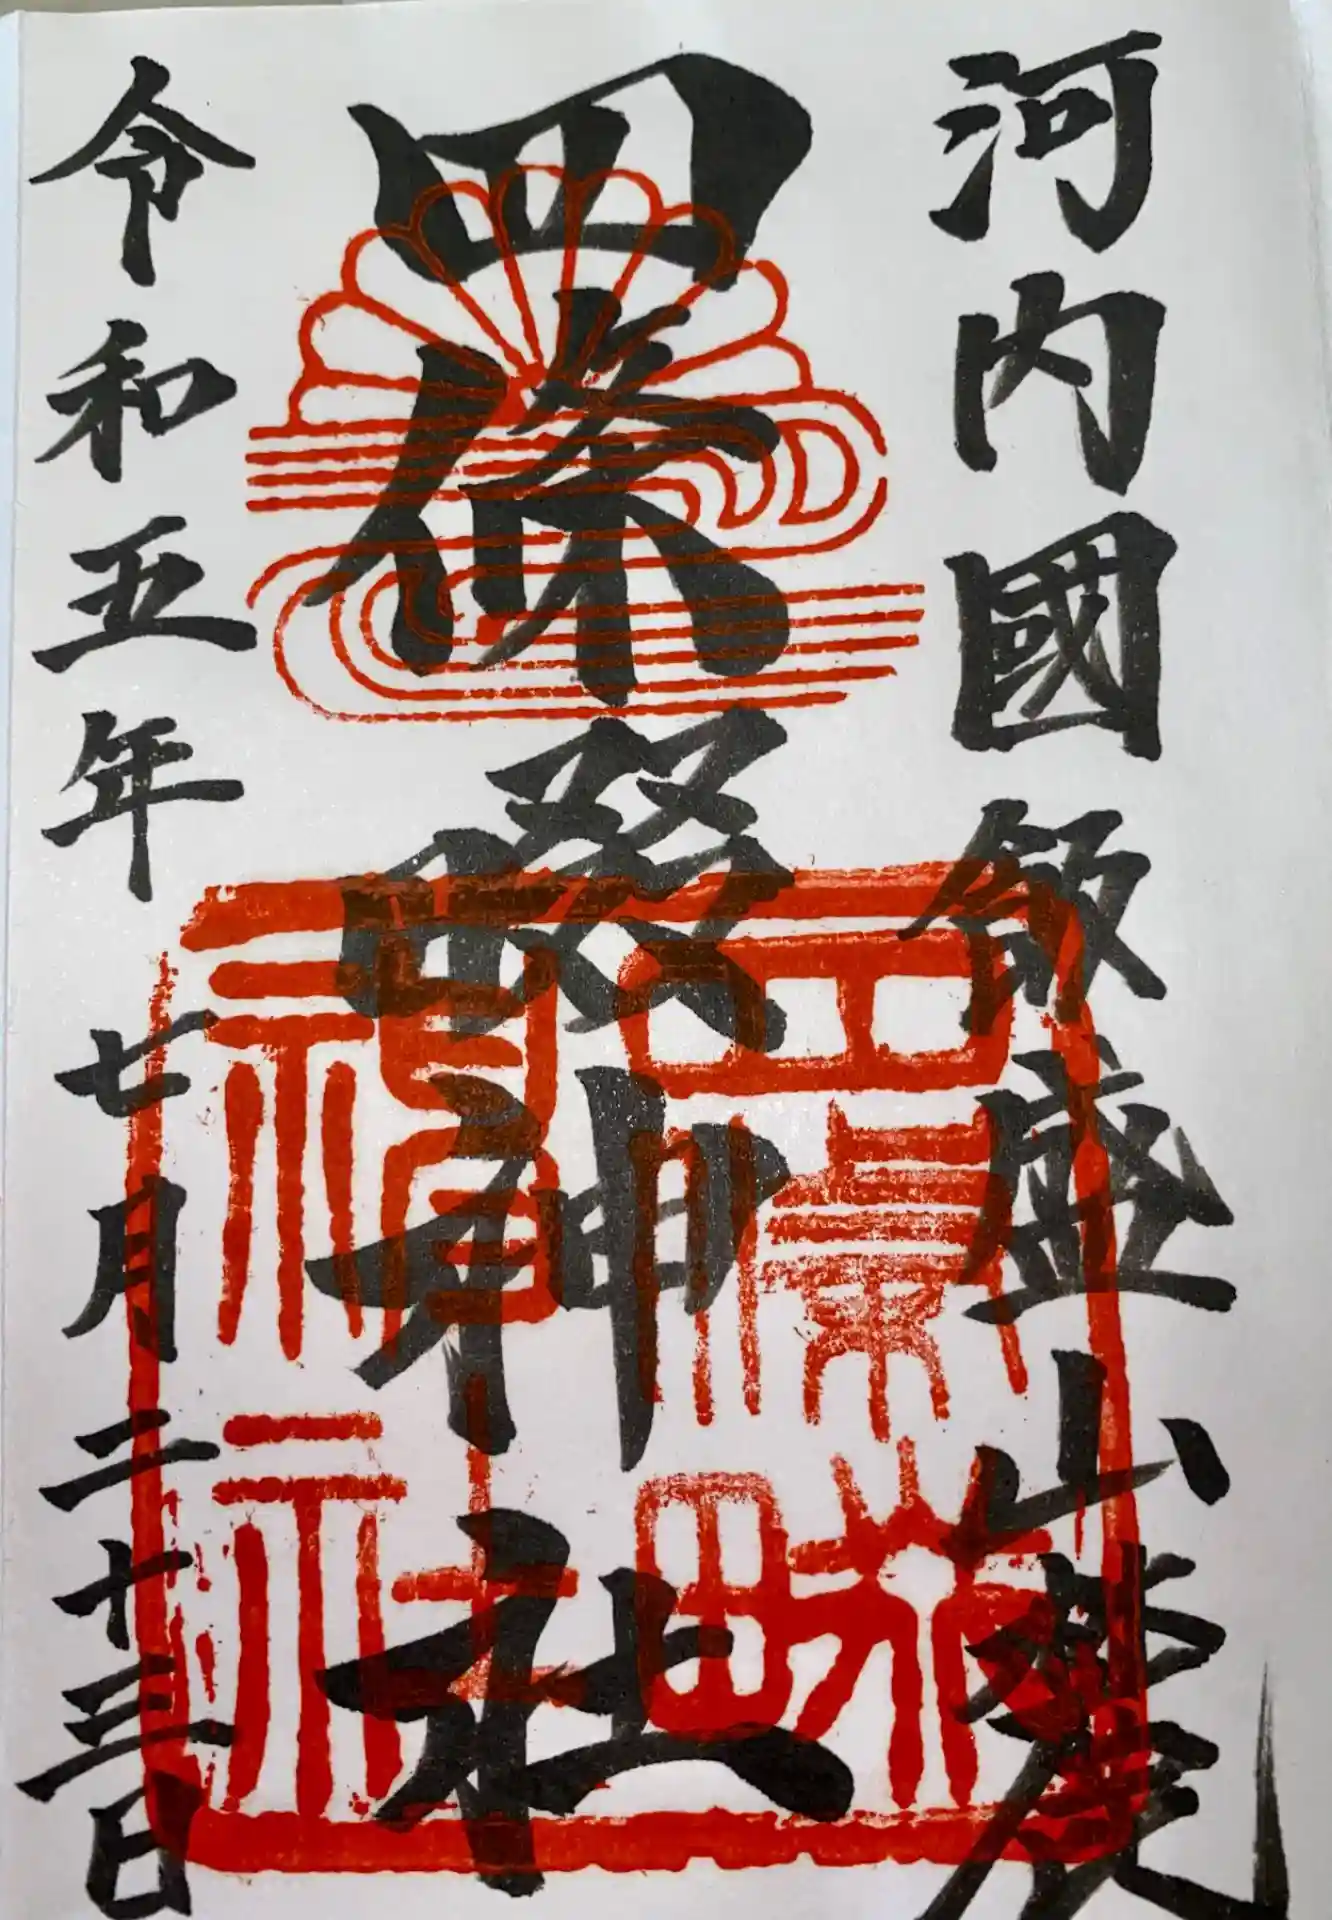 河内國飯盛山麓
四條畷神社
令和五年七月二十三日
四條畷
神社